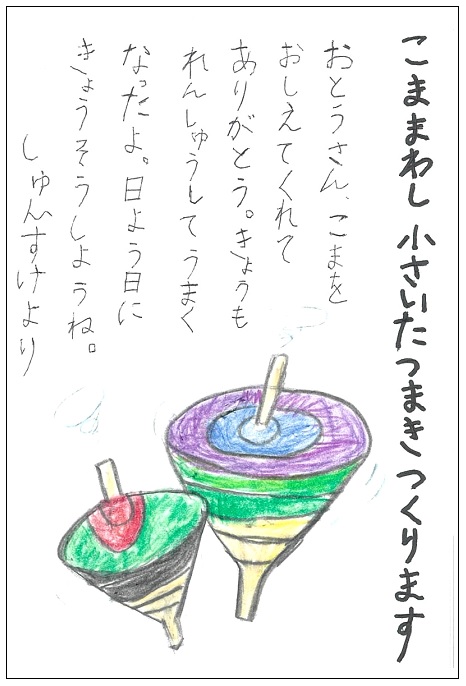 こままわし 小さいたつまき つくります
おとうさん、こまを
おしえてくれて
ありがとう。きょうも
れんしゅうしてうまく
なったよ。日よう日に
きょうそうしようね。
しゅんすけより